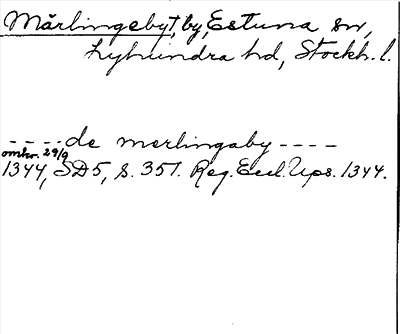 Märlingebyt, by, Estuna sn,
Lyhundra hd, Stockh. l.
---- de merlingaby ----
omkr. 29/9
1344, SD5, s. 351. Reg. Eccl. Ups. 1344.